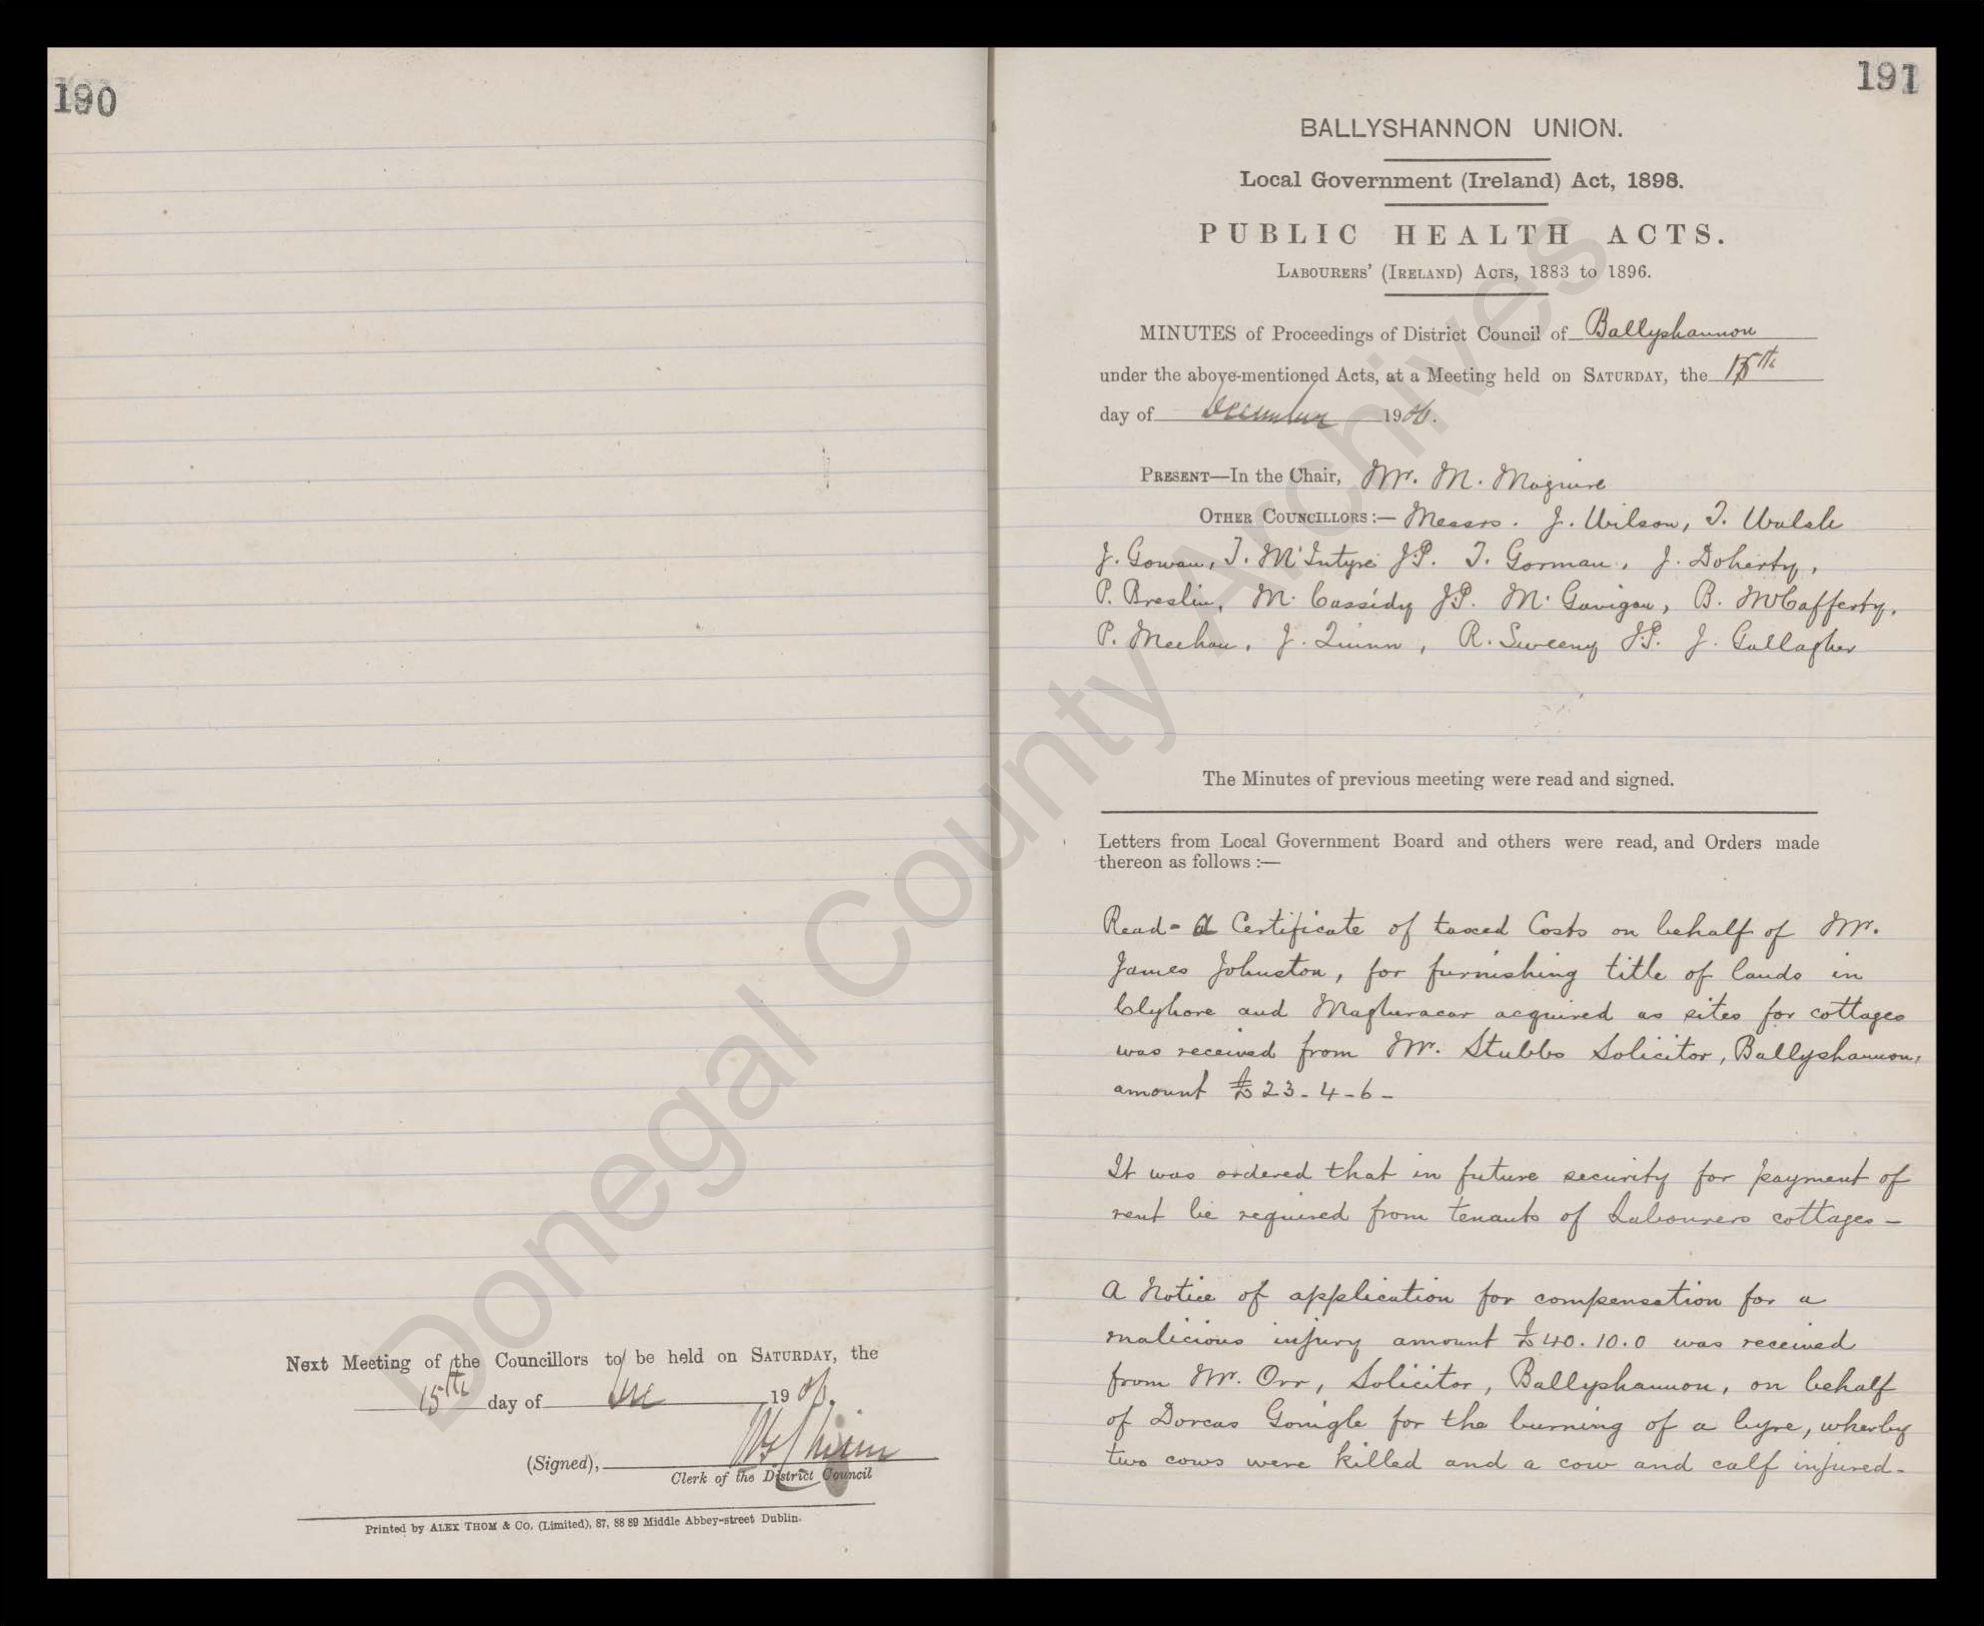 190
Next Meeting of the Councillors to be held on SATURDAY, the
15th day of Dec 1906.
(Signed),
Clerk of the District Council
Printed by ALEX THOM & Co. (Limited), 87, 88 89 Middle Abbey-street Dublin.
191
BALLYSHANNON UNION.
Local Government (Ireland) Act, 1898.
PUBLIC HEALTH ACTS.
LABOURERS' (IRELAND) ACTS, 1883 to 1896.
MINUTES of Proceedings of District Council of Ballyshannon
under the above-mentioned Acts, at a Meeting held on SATURDAY, the 15th
day of December 1906.
PRESENT—In the Chair, Mr. M. Maguire
OTHER COUNCILLORS:— Messrs. J. Wilson, T. Walsh
J. Gowan, T. McIntyre J.P. T. Gorman, J. Doherty,
P. Breslin, M. Cassidy J.P. M. Gavigan, B. McCafferty,
P. Meehan, J. Quinn, R. Sweeny J.P. J. Gallagher
The Minutes of previous meeting were read and signed.
Letters from Local Government Board and others were read, and Orders made
thereon as follows :—
Read - A Certificate of taxed Costs on behalf of Mr.
James Johnston, for furnishing title of lands in
Clyhore and Magheracar acquired as sites for cottages
was received from Mr. Stubbs Solicitor, Ballyshannon,
amount £23-4-6-
It was ordered that in future security for payment of
rent be required from tenants of Labourers cottages -
A Notice of application for compensation for a
malicious injury amount £40.10.0 was received
from Mr. Orr, Solicitor, Ballyshannon, on behalf
of Dorcas Gonigle for the burning of a byre, wherby
two cows were killed and a cow and calf injured-
Donegal County Archives